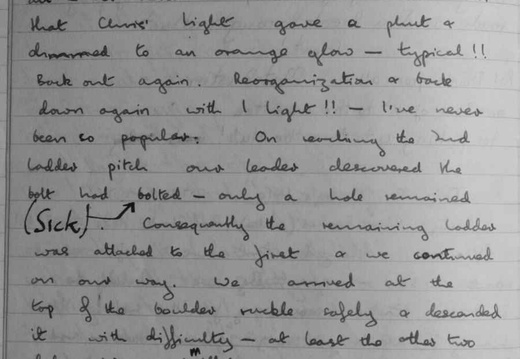 that Chris' light gave a phut &
dimmed to an orange glow — typical!!
Back out again. Reorganization & back
down again with 1 light!! — I've never
been so popular. On reaching the 2nd
ladder pitch our leader descovered the
bolt had bolted — only a hole remained
(Sick). Consequently the remaining ladder
was attached to the first & we continued
on our way. We arrived at the
top of the boulder ruckle safely & descended
it with difficulty — at least the other two